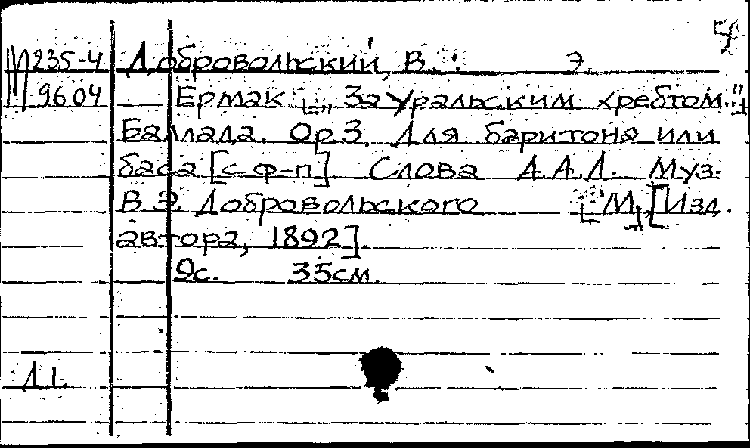 М 235-4 Добровольский, В. Э.
9604 Ермак [„За Уральским хребтом..."]
Баллада. Op.3. Для баритона или
баса [с ф-п]. Слова А.А.Л. Муз.
В.Э. Добровольского [М], [Изд.
автора, 1892].
9с. 35см.